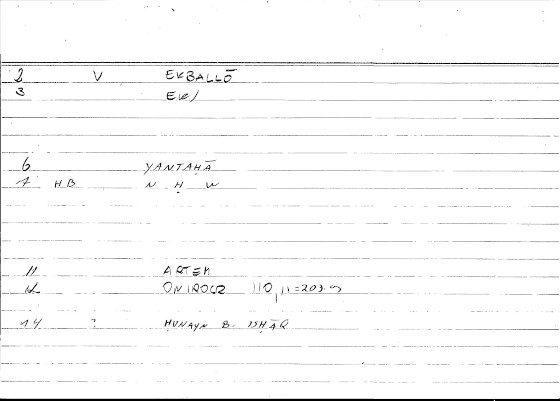 2 V EKBALLŌ
3 EK/
6 YANTAḤĀ
7 HB N Ḥ W
11 ARTEM
12 ONIROCR 110,11=203.9
14 ? ḤUNAYN B. ISḤĀQ